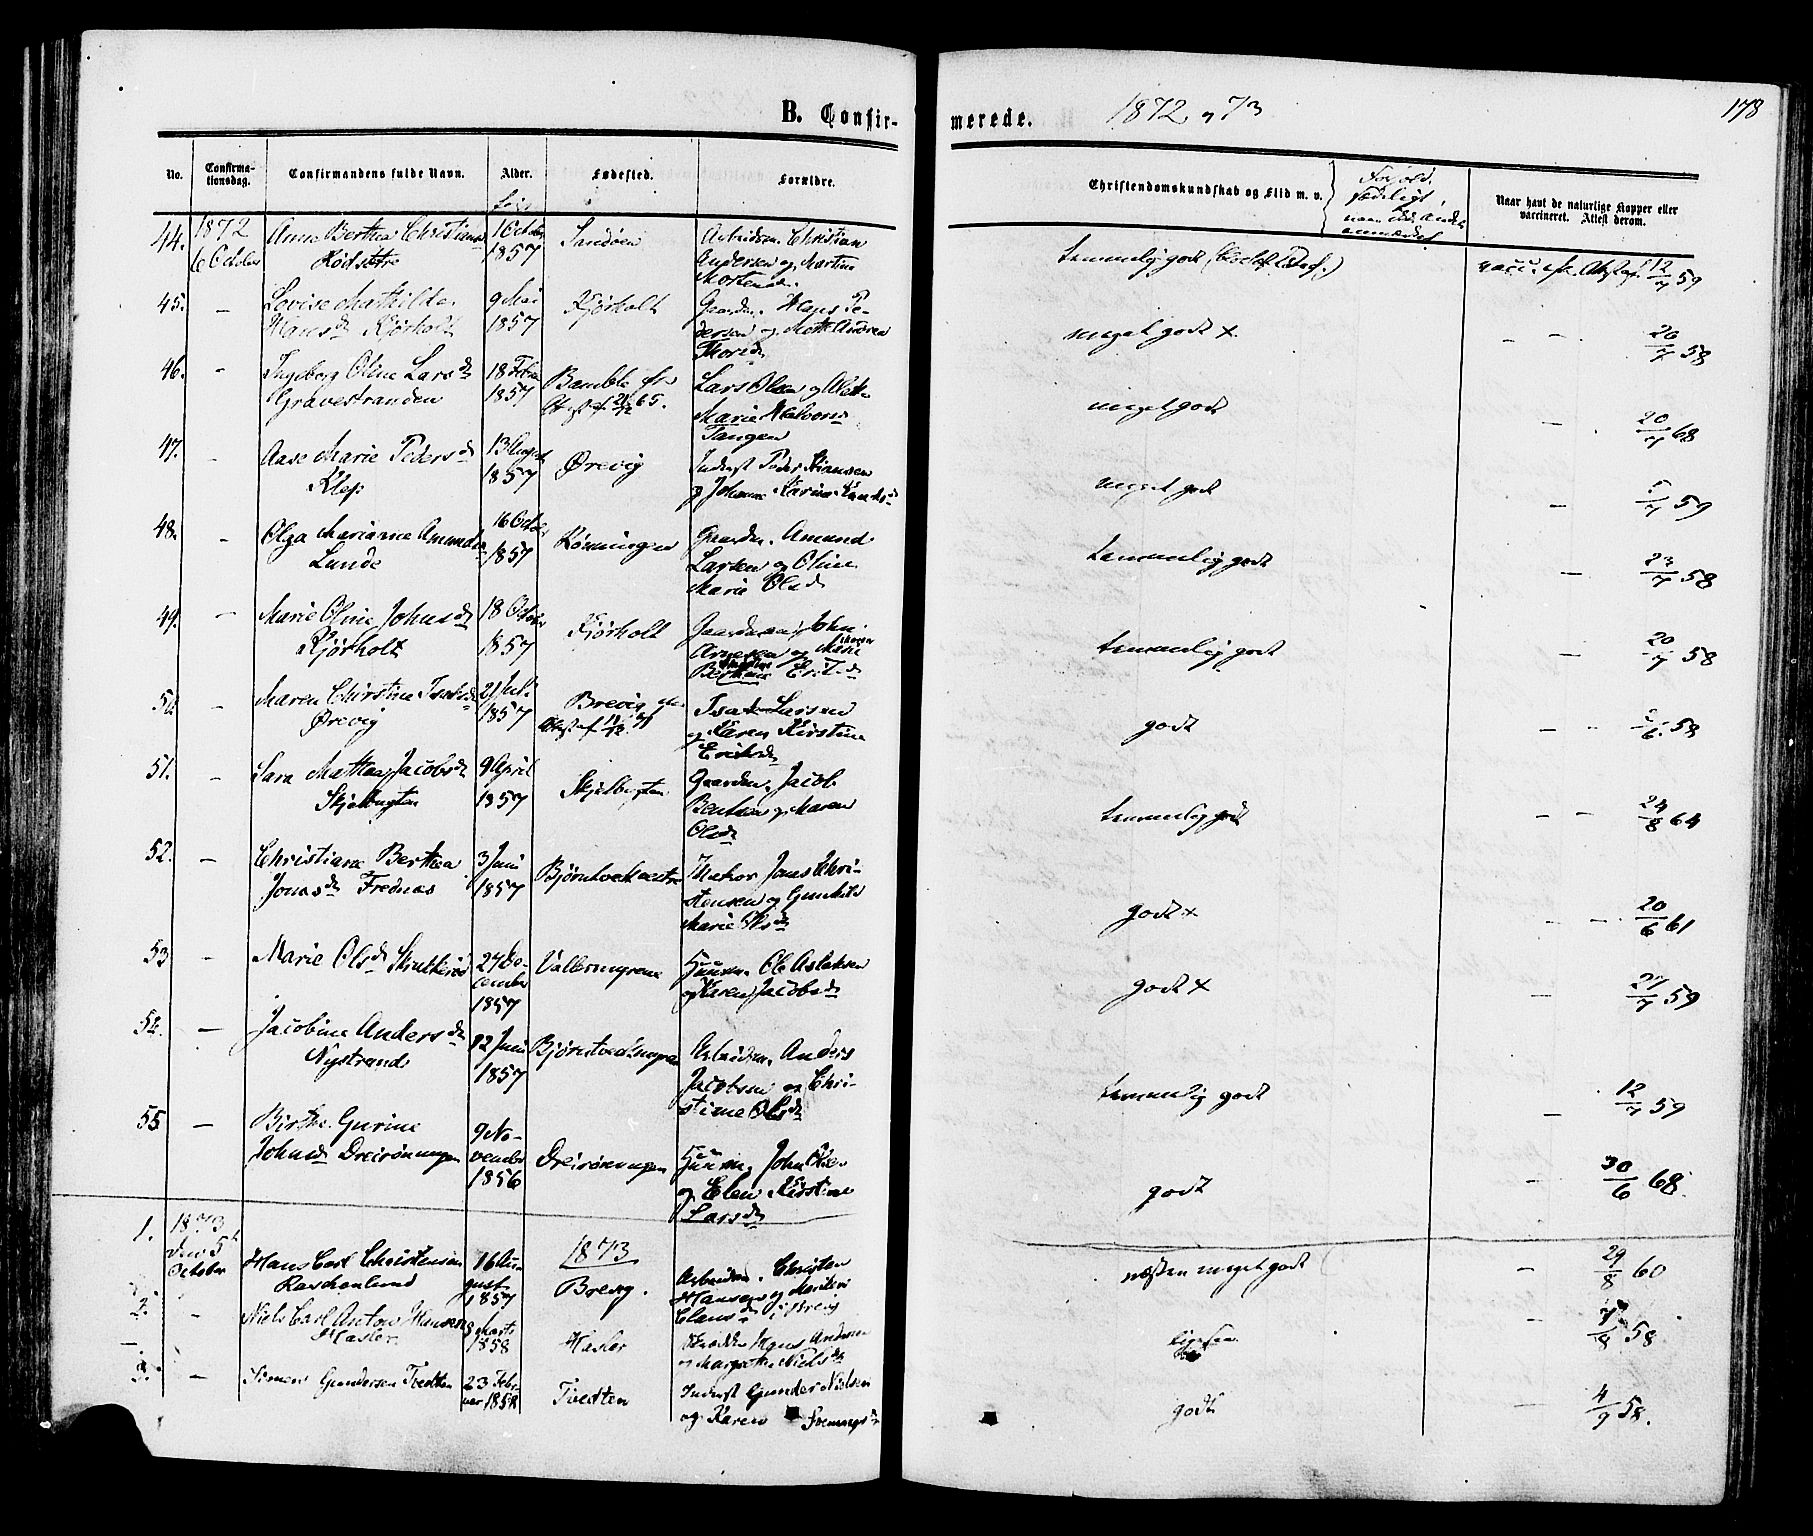 B. Confir-
merede.
1872 og 73
178
No.
Confirma-
tionsdag.
Confirmandens fulde Navn.
Alder.
Fødested.
Forældre.
Christendomskundskab og Flid m. v.
Naar havt de naturlige Kopper eller
vaccineret. Attest derom.
44.
1872
6 October
Anne Berthea Christians
1 October
1857
Sandøen
Arbeidsm. Christian
Andersen og Martine
temmelig godt
12/7 59
45.
–
Lovise Mathilde
Hansd Kjørholt
9 Mai
1857
Kjørholt
Gaardm. Hans Pe-
dersen og
Thorsd
meget godt +
– –
20/7 58
46.
–
Ingeborg Oline Larsd
Gravestranden
18 Febr
1857
Bamble
Lars Olsen og
Marie Halvors
Tangen
meget godt
–
20/7 68
47.
–
Aase Marie Pedersd
Klep
13 August
1857
Ørevig
Inderst Peder
og Johanne Karine
meget godt
–
59
48.
–
Olga Marianne Amundsd
Lunde
16 Octbr
1857
Rønningen
Gaardm. Amund
Larsen og Oline
Marie Olsd
temmelig godt
–
23/7 58
49.
–
Marie Oline Johnsd
Kjørholt
18 October
1857
Kjørholt
Gaardmand John
Arnesen og Maria
temmelig godt
–
20/7 58
50.
–
Maren Christine Isaksd
Ørevig
21 Juli
1857
Brevig
Isak Larsen
og Karen Kirstine
Eriksd
godt
– –
58
51.
–
Sara Mathea Jacobsd
Skjelbugten
9 April
1857
Skjelbugten
Gaardm. Jacob
Bentsen og Maren
Olsd
temmelig godt
– –
24/8 64
52.
–
Christiane Berthea
Jonasd Frednes
3 Juni
1857
Jons Chri-
stensen og Gunhild
Marie Olsd
godt +
– –
20/6 61
53
–
Marie Olsd
27 De-
cember
1857
Vallermyrene
Huusm. Ole Aslaksen
og Karen Jacobsd
godt +
–
27/7 59
54.
–
Jacobine Andersd
Nystrand
12 Juni
1857
Bjørntvedtmyren
Arbeidsm. Anders
Jacobsen og Chri-
stine Olsd
temmelig godt
–
12/7 59
55
–
Birthe Gurine
Johnsd Dreirønningen
9 No-
vember
1856
Dreirønningen
Huusm. John Olsen
og Elen Kirstine
Larsd
godt
30/6 68.
1.
1873
den 5te
October
1873
Hans Carl Christensen
16 Au-
gust
1857
Brevig.
Arbeidsm. Christen
Hansen og
i Brevig
næsten meget godt
29/8 60
2.
–
Niels Carl Anton Hansen
Hasler
8 Marts
1858
Hasler
Hans Andersen
og Margrethe Nielsd
58
3.
–
Simen Gundersen Tvedten
23 Febr-
uar 1858
Tvedten
Inderst Gunder Nielsen
og Karen
godt
–
4/9 58.